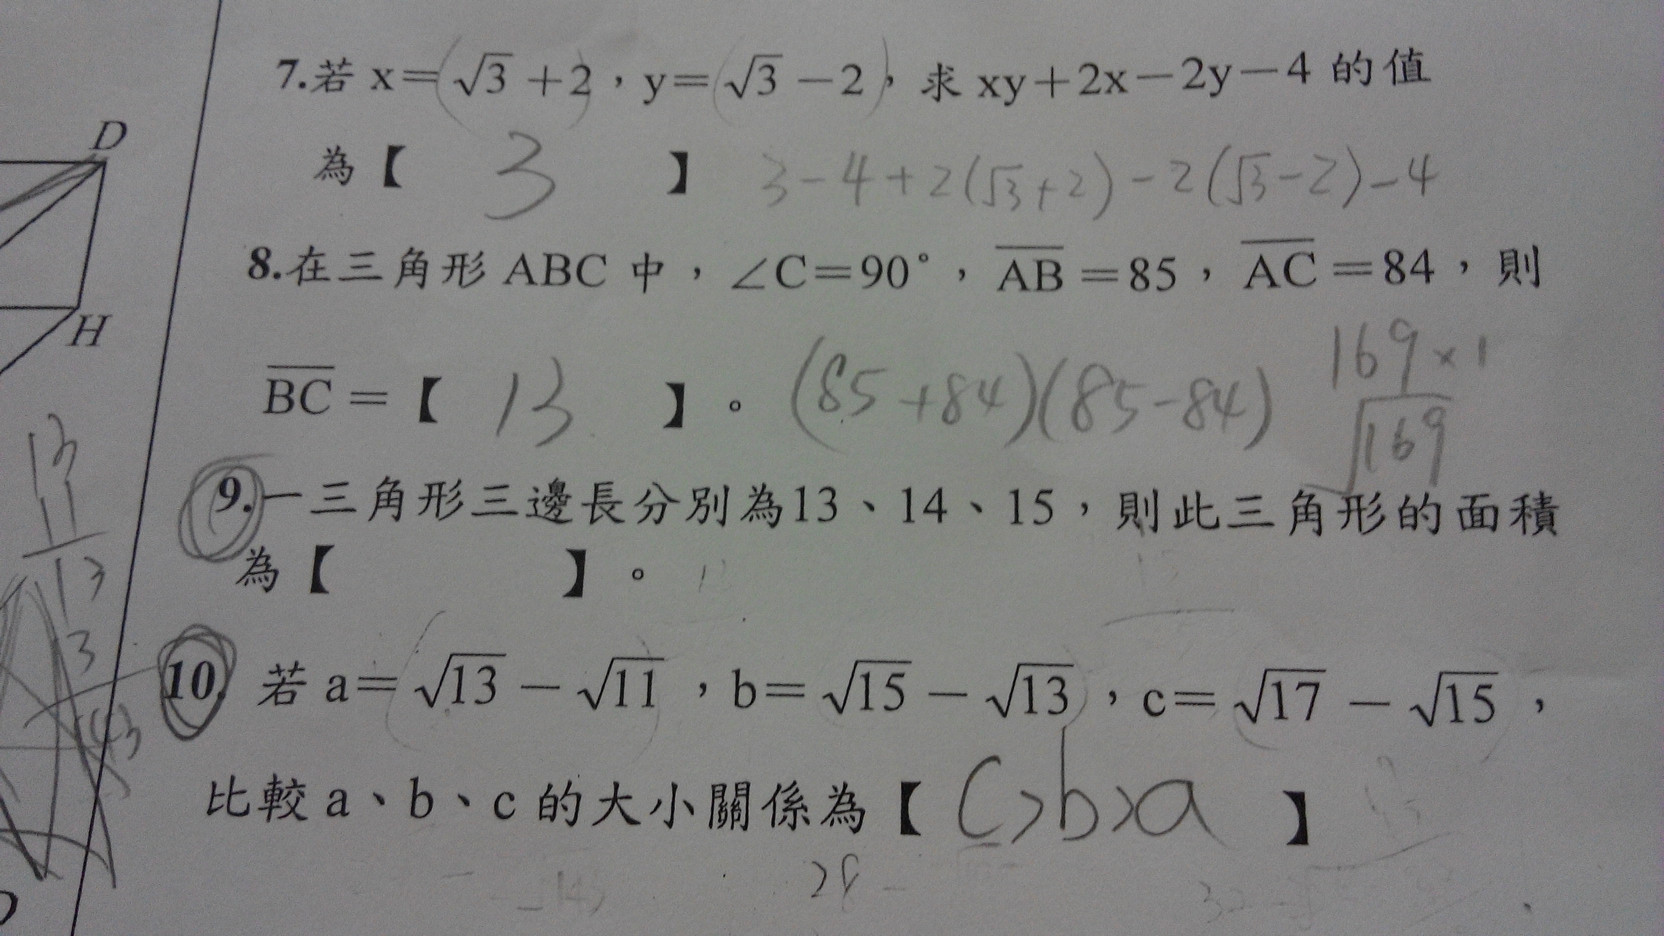 D
H
13
11
13
3
7.若 x=√3+2,y=√3-2,求 xy+2x-2y-4 的值
為【 3 】 3-4+2(√3+2)-2(√3-2)-4
8.在三角形 ABC 中,∠C=90°,A̅B̅=85,A̅C̅=84,則
169×1
B̅C̅=【 13 】。(85+84)(85-84) √169
9.一三角形三邊長分別為13、14、15,則此三角形的面積
為【 】。
10. 若 a=√13-√11,b=√15-√13,c=√17-√15,
比較 a、b、c 的大小關係為【 c>b>a 】
28